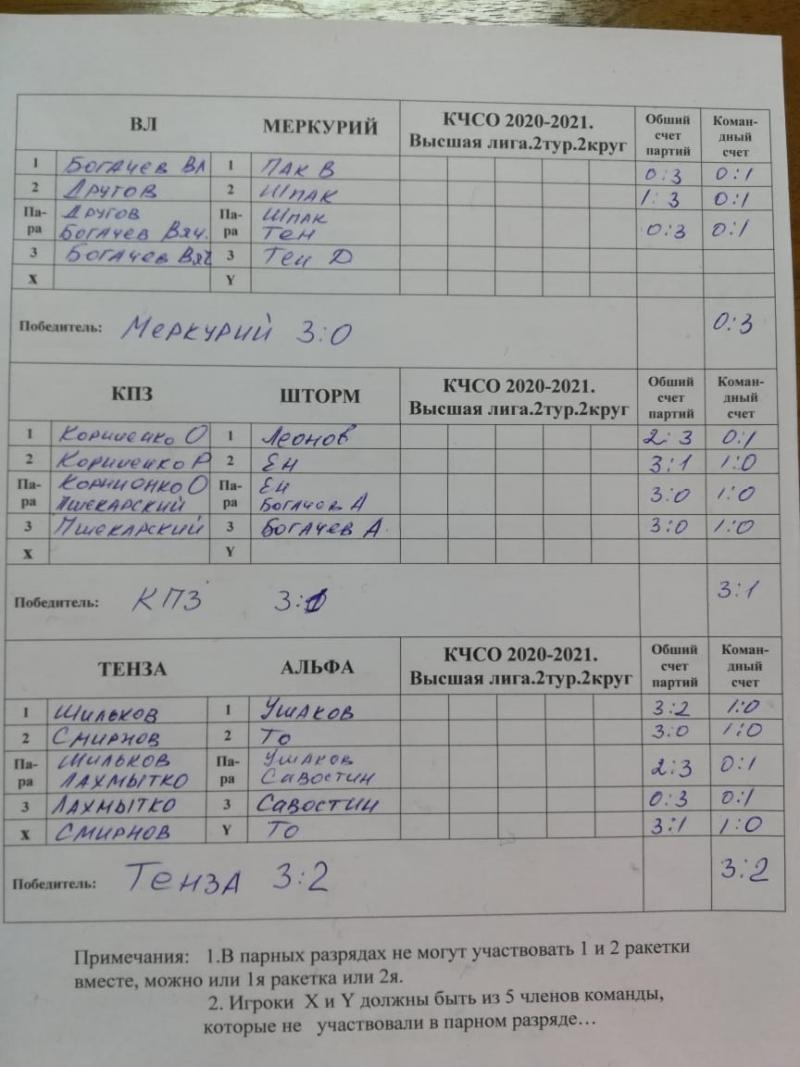 ВЛ МЕРКУРИЙ КЧСО 2020-2021. Высшая лига.2тур.2круг Обший счет партий Коман-дный счет
1 Богачев Вл 1 Пак В 0:3 0:1
2 Другов 2 Шпак 1:3 0:1
Па-ра Другов Па-ра Шпак
Богачев Вяч. Тен 0:3 0:1
3 Богачев Вяч 3 Тен Д
X Y
Победитель: Меркурий 3:0 0:3
КПЗ ШТОРМ КЧСО 2020-2021. Высшая лига.2тур.2круг Обший счет партий Коман-дный счет
1 Корниенко О 1 Леонов 2:3 0:1
2 Корниенко Р 2 Ен 3:1 1:0
Па-ра Корниенко О Па-ра Ен
Пшекарский Богачев А 3:0 1:0
3 Пшекарский 3 Богачев А. 3:0 1:0
X Y
Победитель: КПЗ 3:1 3:1
ТЕНЗА АЛЬФА КЧСО 2020-2021. Высшая лига.2тур.2круг Обший счет партий Коман-дный счет
1 Шильков 1 Ушаков 3:2 1:0
2 Смирнов 2 То 3:0 1:0
Па-ра Шильков Па-ра Ушаков
Лахмытко Савостин 2:3 0:1
3 Лахмытко 3 Савостин 0:3 0:1
X Смирнов Y То 3:1 1:0
Победитель: Тенза 3:2 3:2
Примечания: 1.В парных разрядах не могут участвовать 1 и 2 ракетки
вместе, можно или 1я ракетка или 2я.
2. Игроки X и Y должны быть из 5 членов команды,
которые не участвовали в парном разряде…